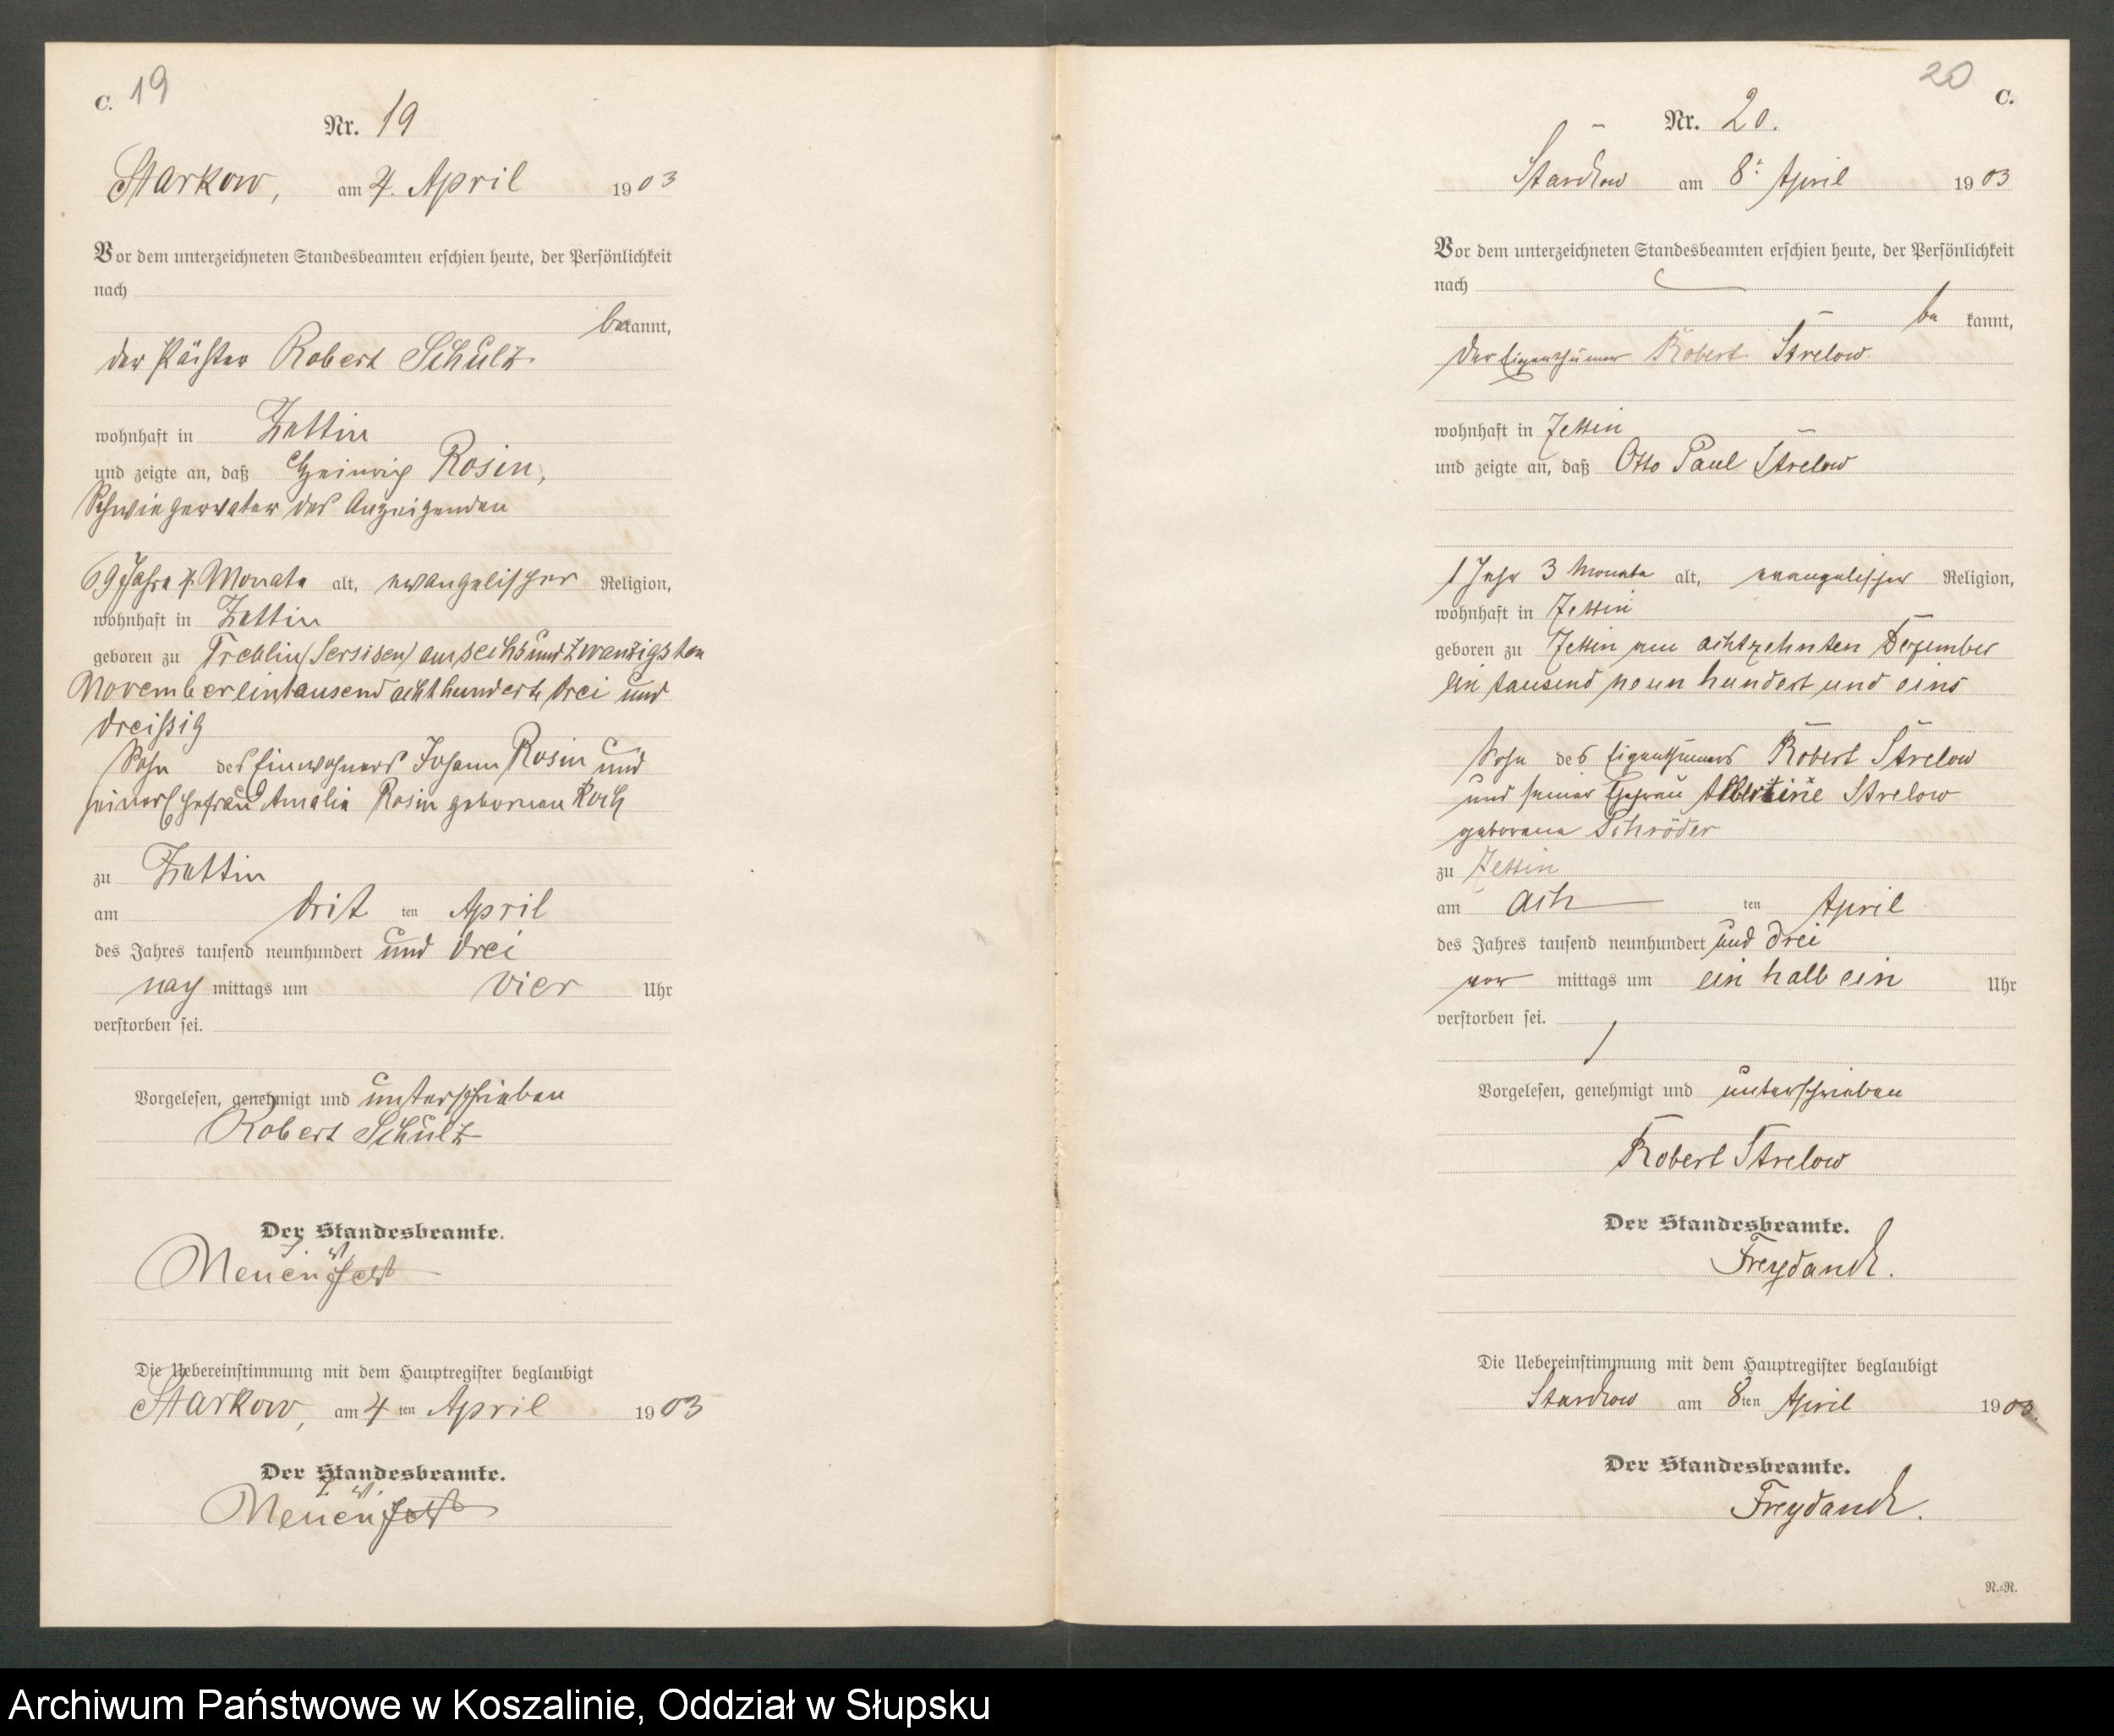 C. 19
Nr. 19
Starkow, am 4. April 1903
Vor dem unterzeichneten Standesbeamten erschien heute, der Persönlichkeit
nach
bekannt,
der Pächter Robert Schulz
wohnhaft in Zettin
und zeigte an, daß Heinrich Rosin,
Schwiegervater des Anzeigenden
69 Jahre 4 Monate alt, evangelischer Religion,
wohnhaft in Zettin
geboren zu Treblin am sechsundzwanzigsten
November eintausend achthundert drei und
dreißig
Sohn des Einwohners Johann Rosin und
seiner Ehefrau Amalie Rosin geborenen Koch
zu Zettin
am dritten April
des Jahres tausend neunhundert und drei
nachmittags um vier Uhr
verstorben sei.
Vorgelesen, genehmigt und unterschrieben
Robert Schulz
Der Standesbeamte.
Die Uebereinstimmung mit dem Hauptregister beglaubigt
Starkow, am 4ten April 1903
Der Standesbeamte.
20 C.
Nr. 20.
Starckow am 8. April 1903
Vor dem unterzeichneten Standesbeamten erschien heute, der Persönlichkeit
nach
bekannt,
der Eigenthümer Robert Strelow
wohnhaft in Zettin
und zeigte an, daß Otto Paul Strelow
1 Jahr 3 Monate alt, evangelischer Religion,
wohnhaft in Zettin
geboren zu Zettin am achtzehnten Dezember
ein tausend neun hundert und eins
Sohn des Eigenthümers Robert Strelow
und seiner Ehefrau Albertine Strelow
geborene Schröder
zu Zettin
am achten April
des Jahres tausend neunhundert und drei
vormittags um ein halb ein Uhr
verstorben sei.
Vorgelesen, genehmigt und unterschrieben
Robert Strelow
Der Standesbeamte.
Freydanck.
Die Uebereinstimmung mit dem Hauptregister beglaubigt
Starckow am 8ten April 1903.
Der Standesbeamte.
Freydanck.
N.=N.
Archiwum Państwowe w Koszalinie, Oddział w Słupsku